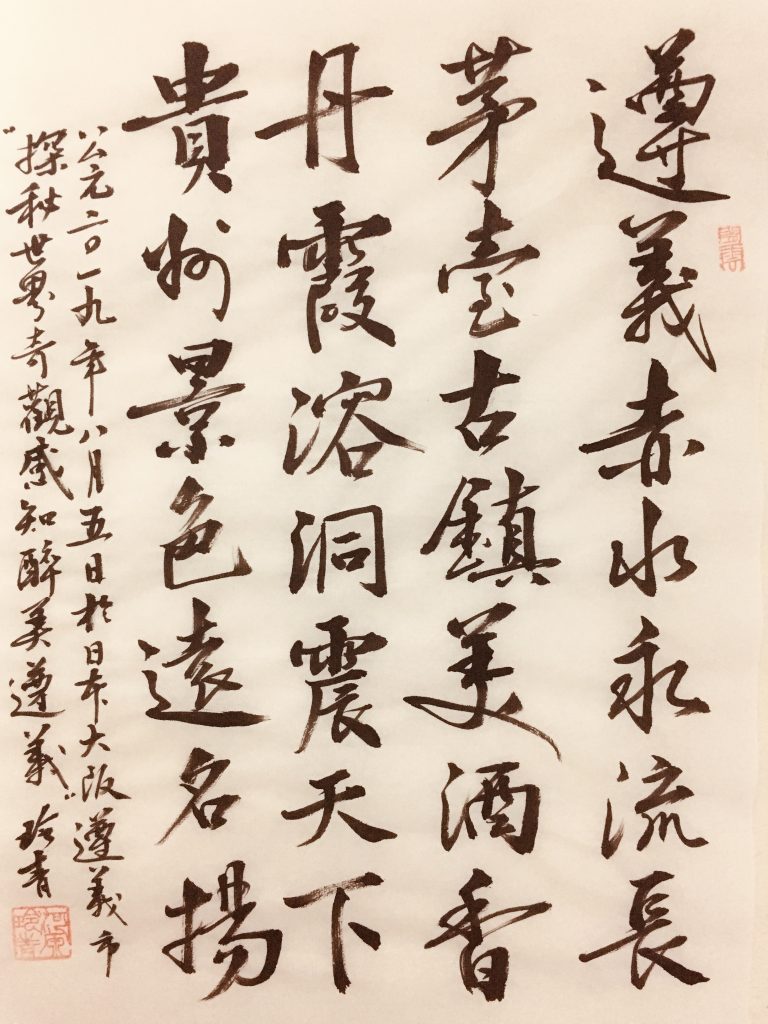 遵義赤水永流長
茅臺古鎮美酒香
丹霞溶洞震天下
貴州景色遠名揚
公元二〇一九年八月五日於日本大阪遵義市
“探秘世界奇觀感知醉美遵義”玲青